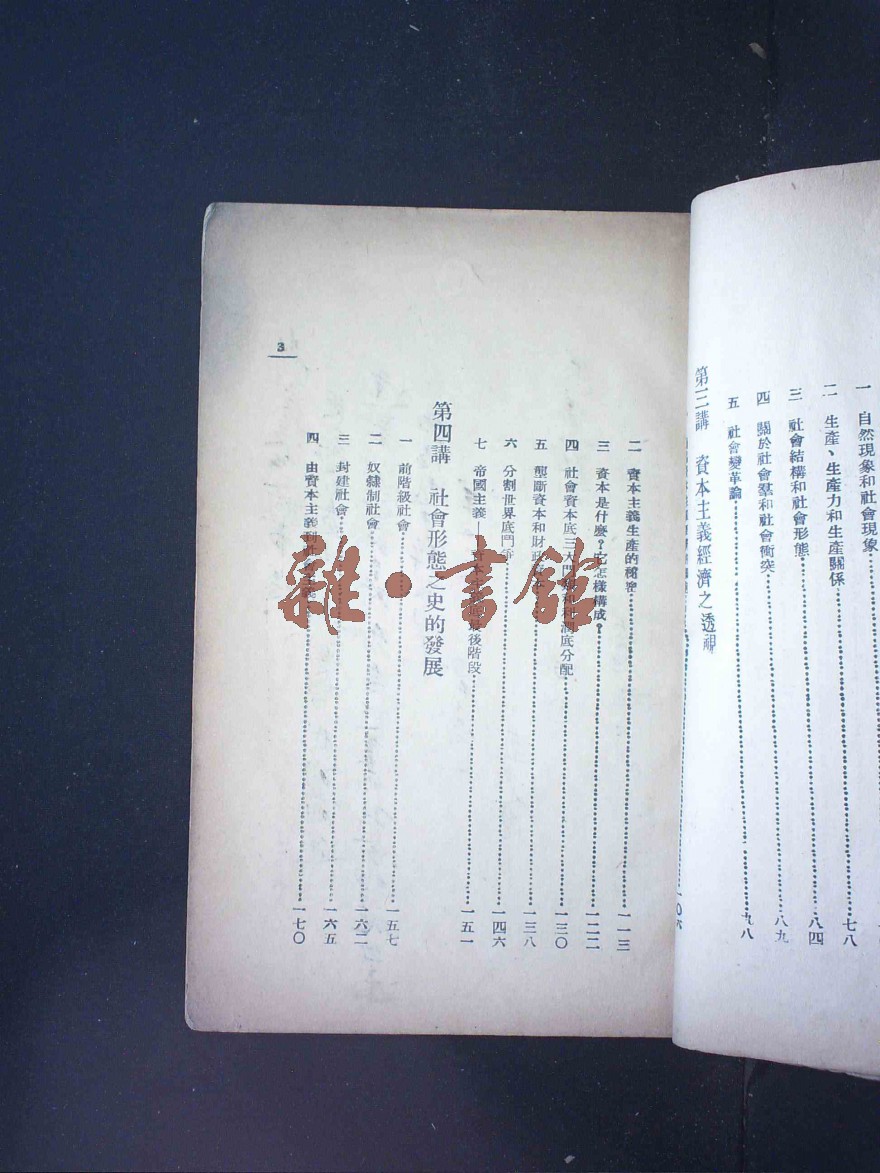 一　自然現象和社會現象
二　生產、生產力和生產關係……七八
三　社會結構和社會形態……八四
四　關於社會羣和社會衝突……八九
五　社會變革論……九八
第三講　資本主義經濟之透視
……一〇六
二　資本主義生產的祕密……一一三
三　資本是什麼？它怎樣構成……一二二
四　社會資本底三大門類和利潤底分配……一三〇
五　壟斷資本和財政……一三八
六　分割世界底鬥爭……一四六
七　帝國主義——資本主義最後階段……一五一
第四講　社會形態之史的發展
一　前階級社會……一五七
二　奴隸制社會……一六二
三　封建社會……一六五
四　由資本主義到社會……一七〇
3
雜·書館